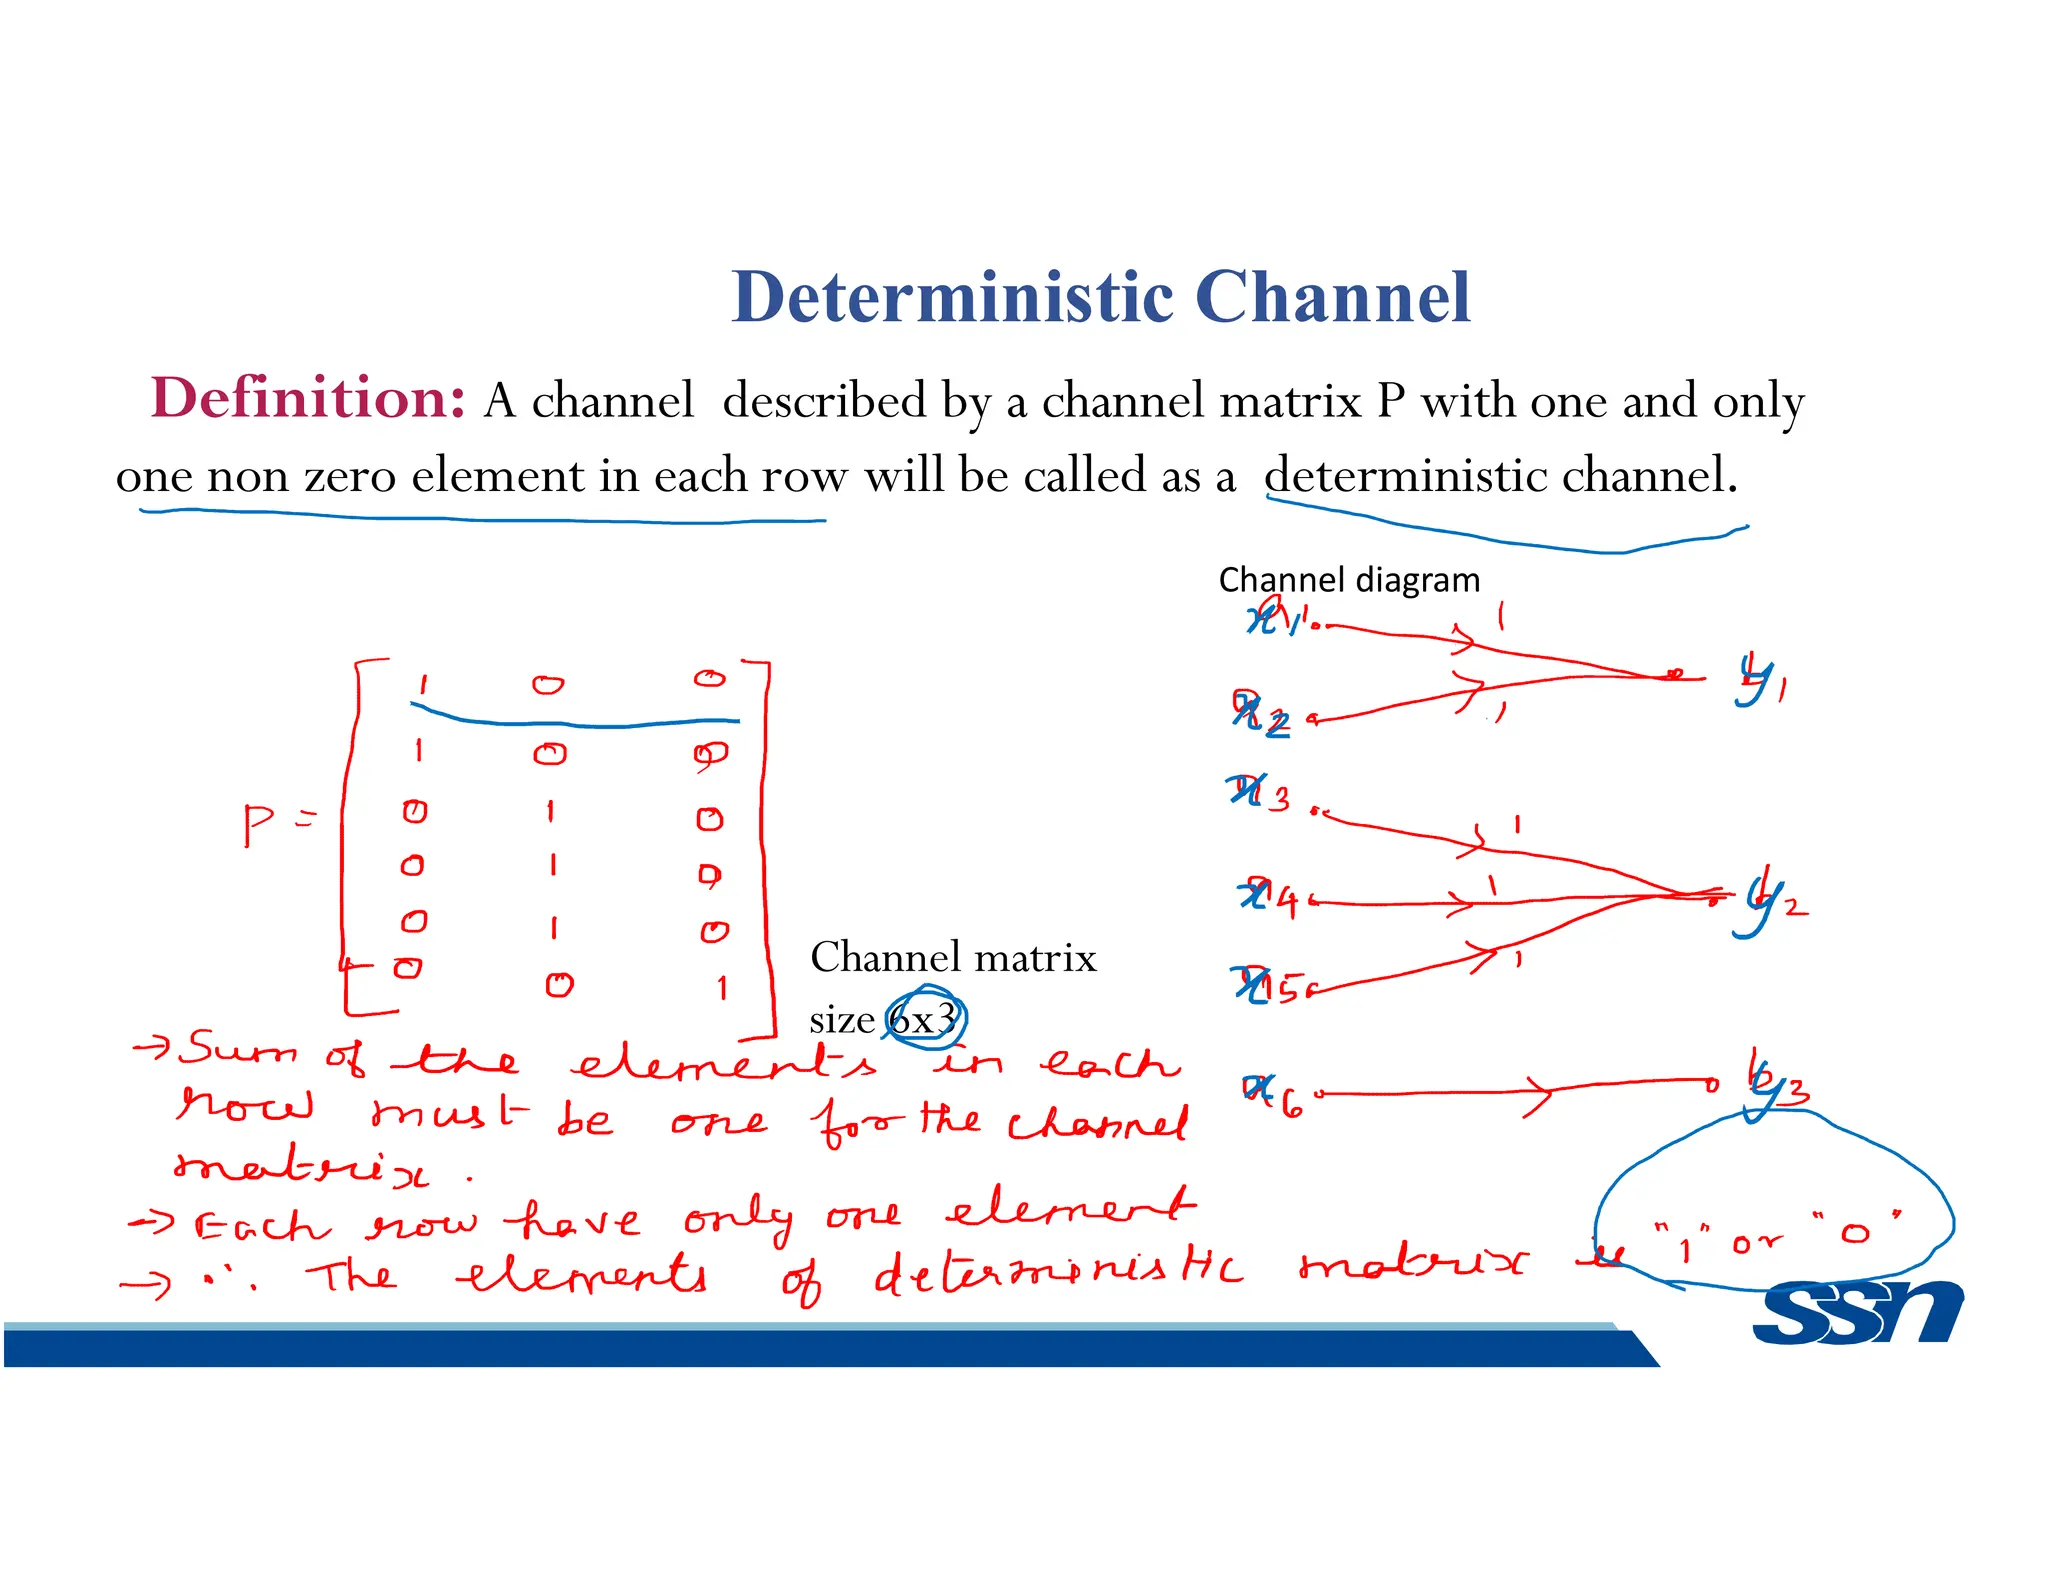 Deterministic Channel
Definition: A channel described by a channel matrix P with one and only
one non zero element in each row will be called as a deterministic channel.
Channel diagram
P =
1 0 0
1 0 0
0 1 0
0 1 0
0 1 0
0 0 1
Channel matrix
size 6x3
x1 1 y1
x2 1
x3 1
x4 1 y2
x5 1
x6 y3
→ Sum of the elements in each
row must be one for the channel
matrix.
→ Each row have only one element
→ ∴ The elements of deterministic matrix is "1" or "0"
ssn